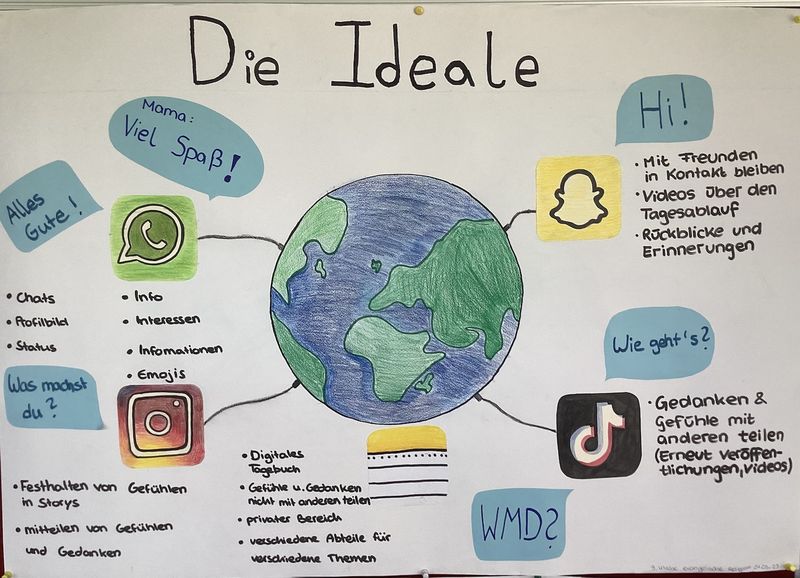 Die Ideale
Mama:
Viel Spaß!
Alles
Gute!
• Chats
• Profilbild
• Status
• Info
• Interessen
• Infomationen
• Emojis
Hi!
• Mit Freunden
in Kontakt bleiben
• Videos über den
Tagesablauf
• Rückblicke und
Erinnerungen
Was machst
du?
• Festhalten von Gefühlen
in Storys
• mitteilen von Gefühlen
und Gedanken
• Digitales
Tagebuch
• Gefühle u. Gedanken
nicht mit anderen teilen
• privater Bereich
• verschiedene Abteile für
verschiedene Themen
Wie geht's?
• Gedanken &
Gefühle mit
anderen teilen
(Erneut Veröffen-
tlichungen, Videos)
WMD?